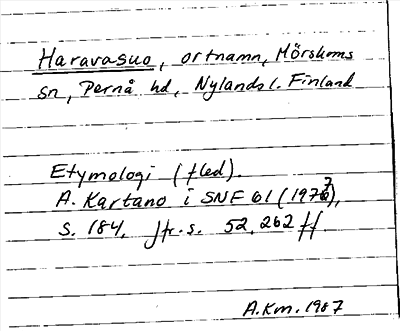 Haravasuo, ortnamn, Mörskoms
sn, Pernå hd, Nylands l. Finland
Etymologi (fled).
A. Kartano i SNF 61 (1977),
s. 184, jfr. s. 52, 262 ff.
A.Km. 1987